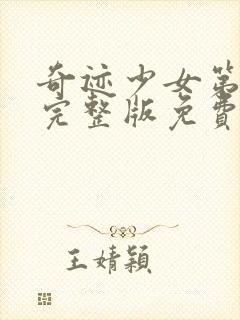 奇迹少女第
完整版免費
王婧穎